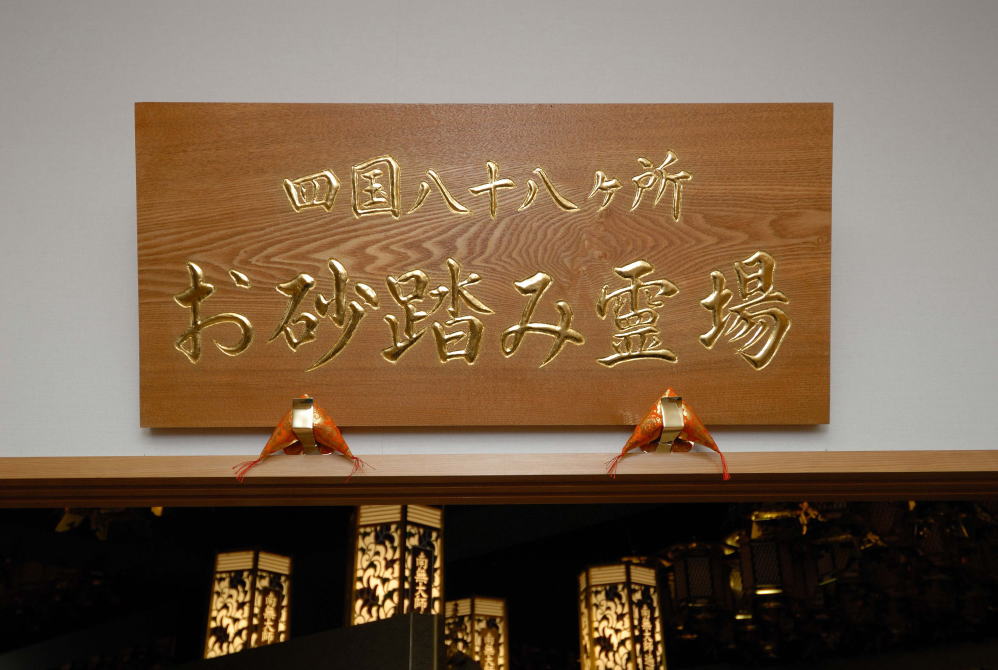 四国八十八ヶ所
お砂踏み霊場
南無大師
南無大師
南無大師